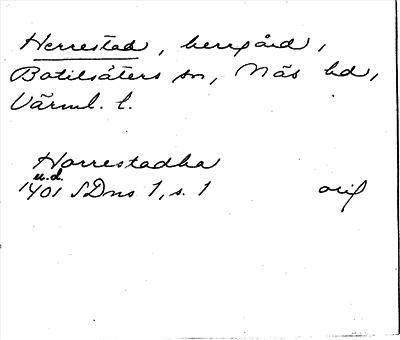 Herrestad, herrgård,
Botilsäters sn, Näs hd,
Värml. l.
Horrestadha
u.d.
1401 SDns 1, s. 1 orig